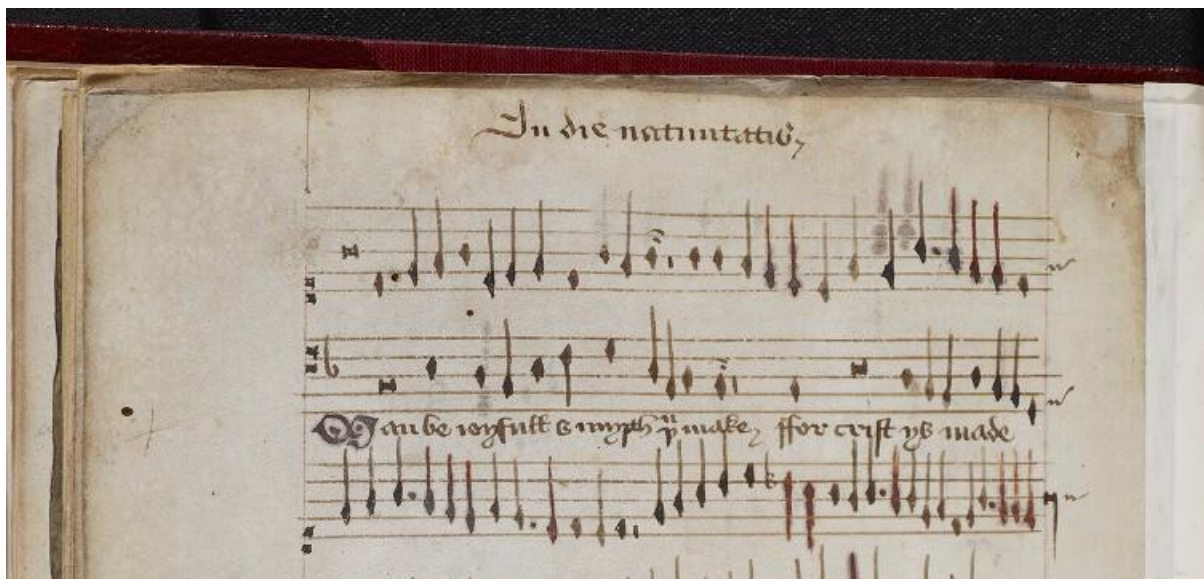 In die natiuitatis
Man be ioyfull & myrth þu make ffor crist ys made